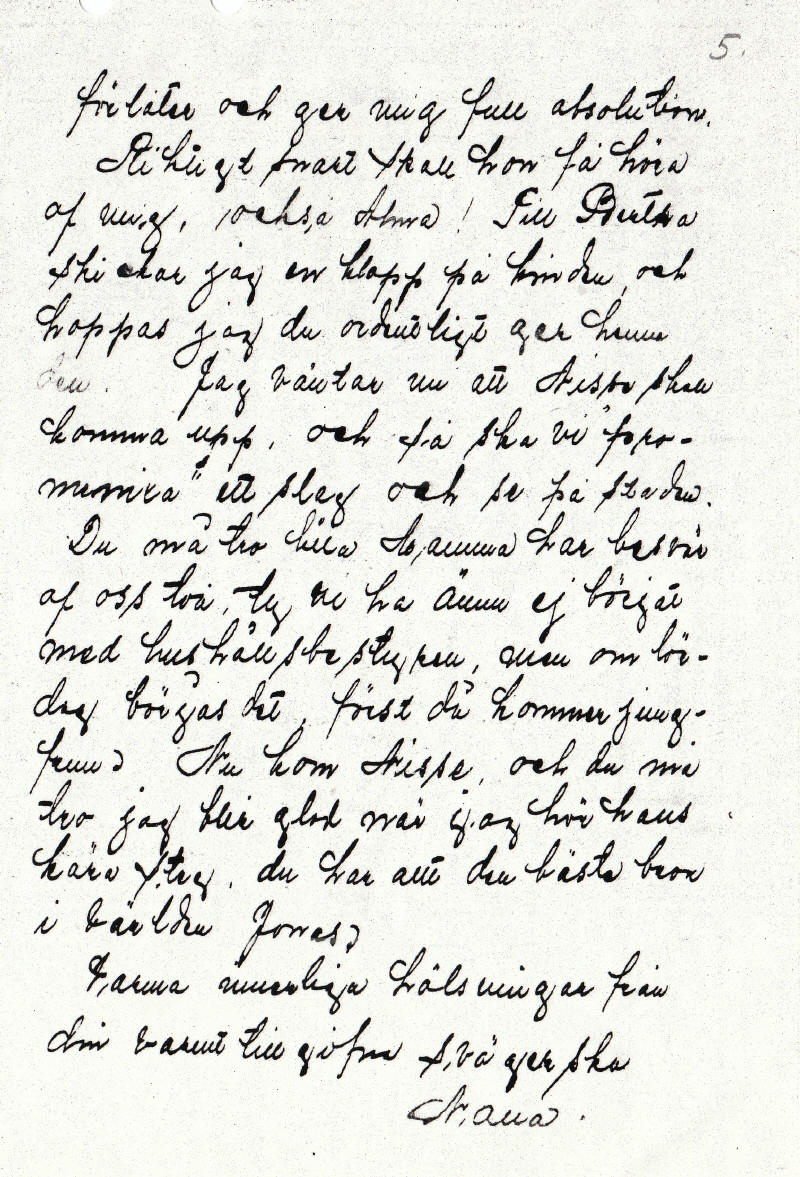 5.
förlåter och ger mig full absolution.
Riktigt snart skall hon få höra
af mig, också Alma! Till Bertha
skickar jag en klapp på kinden, och
hoppas jag du ordentligt ger henne
den. Jag väntar nu att Nisse skall
komma upp, och så ska vi "pro-
menira" ett slag och se på staden.
Du må tro lilla Mamma har besvär
af oss två, ty vi ha ännu ej börjat
med hushållsbestyren, men om lör-
dag börjas det, först då kommer jung-
frun. Nu kom Nisse, och du må
tro jag blir glad när jag hör hans
kära steg, du har allt den bästa bror
i världen Jonas.
Varma innerliga hälsningar från
din varmt tillgifna svägerska
Nana.